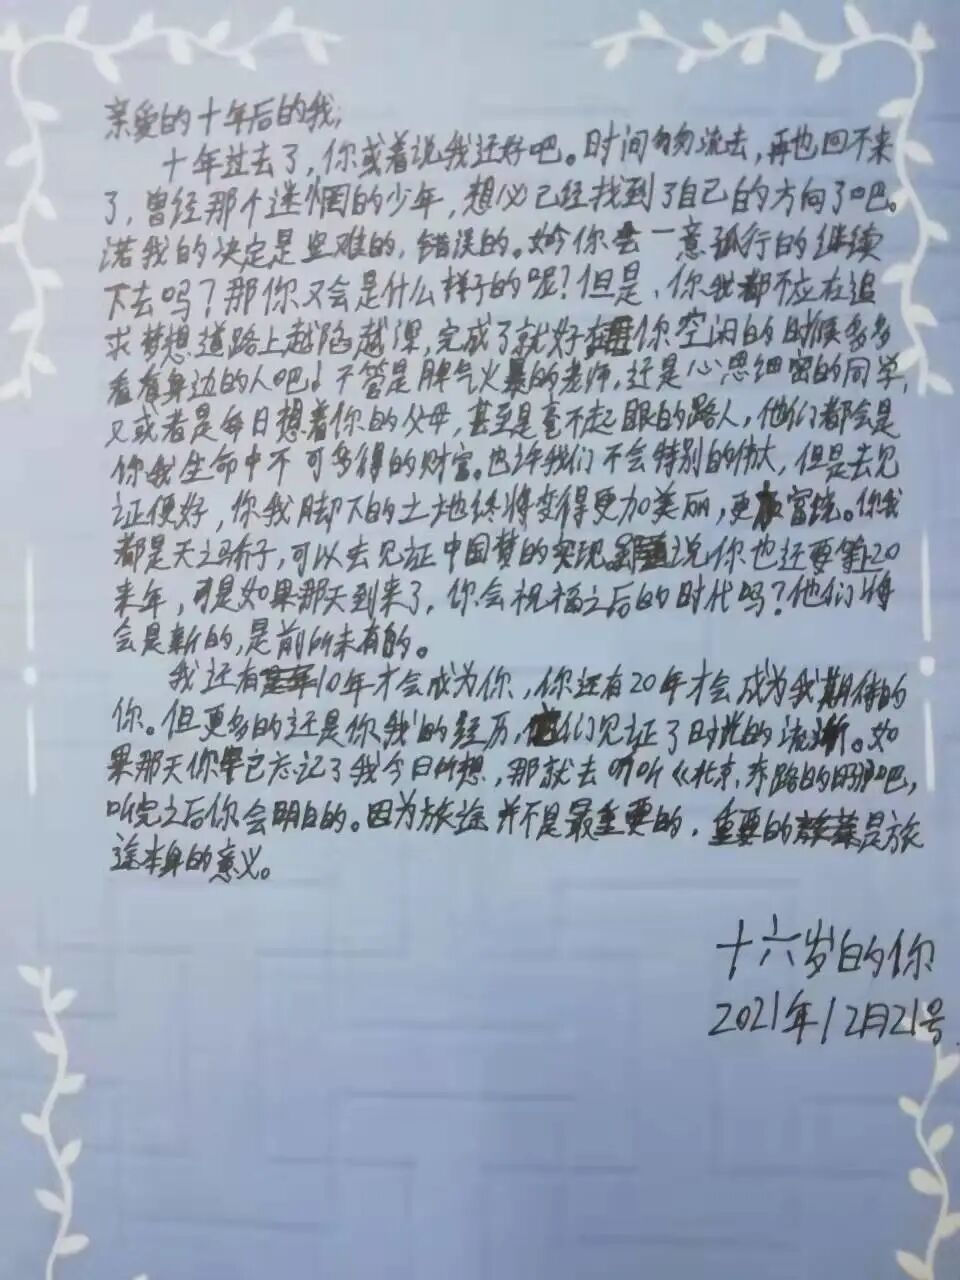 亲爱的十年后的我:
十年过去了,你或者说我还好吧。时间匆匆流去,再也回不来
了,曾经那个迷惘的少年,想必已经找到了自己的方向了吧。
诺我的决定是坚难的,错误的。如今你会一意孤行的继续
下去吗?那你又会是什么样子的呢?但是,你我都不应在追
求梦想道路上越陷越深,完成了就好在你空闲的时候多多
看看身边的人吧!不管是脾气火暴的老师,还是心思细密的同学,
又或者是每日想着你的父母,甚至是毫不起眼的路人,他们都会是
你我生命中不可多得的财富。也许我们不会特别的伟大,但是去见
证便好,你我脚下的土地终将变得更加美丽,更加富饶。你我
都是天之骄子,可以去见证中国梦的实现 说你也还要等20
来年,可是如果那天到来了,你会祝福之后的时代吗?他们将
会是新的,是前所未有的。
我还有10年才会成为你,你还有20年才会成为我期待的
你。但更多的还是你我的经历,他们见证了时光的流淅。如
果那天你早已忘记了我今日所想,那就去听听《北京东路的日子》吧,
听完之后你会明白的。因为旅途并不是最重要的,重要的是旅
途本身的意义。
十六岁的你
2021年12月21号